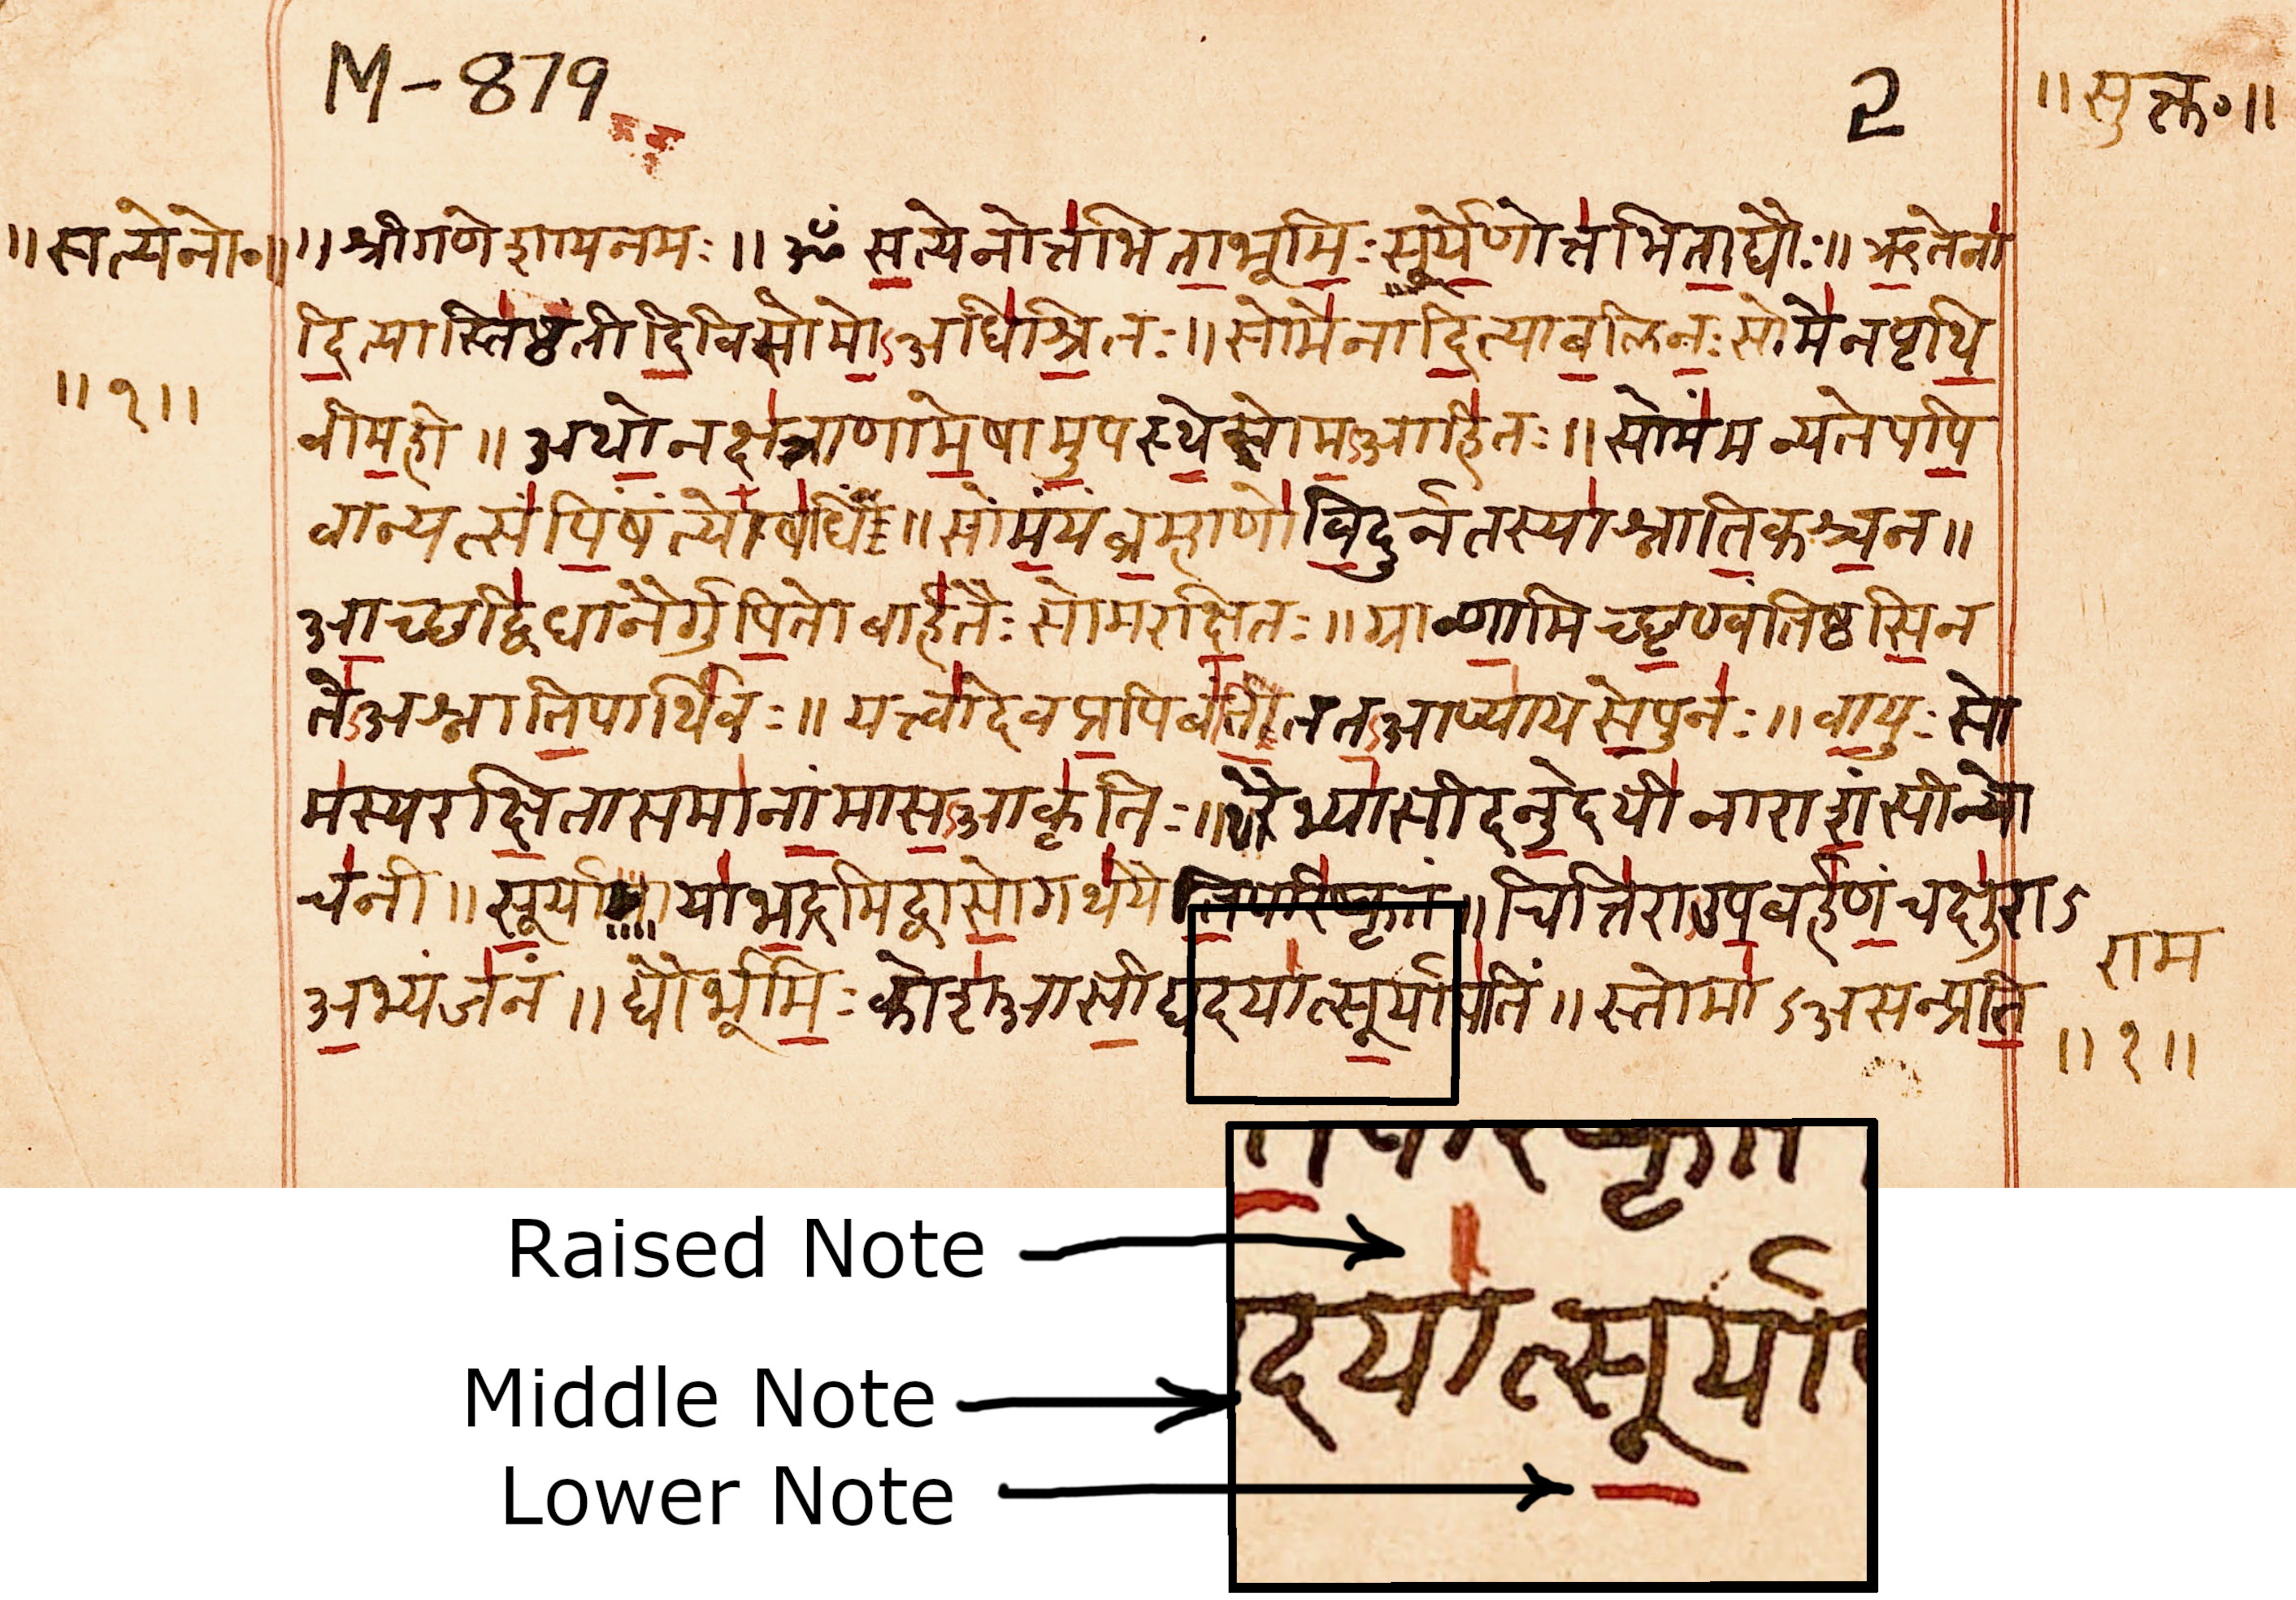 M-879
2
॥सुक्त॰॥
॥सत्येनो॰॥
॥श्रीगणेशायनमः॥ ॐ स॒त्येनोत्त॑भिता॒भूमिः॒सूर्ये॒णोत्त॑भिता॒द्यौः॥ ऋ॒तेना॑
दि॒त्यास्ति॑ष्ठंतीदि॒विसोमो॒ऽअधि॑श्रि॒तः॥सोमे॑नादि॒त्याब॒लिनः॒सोमे॑नपृथि॒
वीम॒ही॥अथो॒नक्ष॑त्राणामे॒षामु॒पस्थे॒सोम॒ऽआहि॑तः॥सोमं॑मन्यतेपपि॒
॥१॥
वान्यत्सं॑पिं॒षंत्यो॑षधिं॥सोमं॒यंब्र॒म्हाणो॑वि॒दुर्नतस्या॑श्नाति॒कश्च॒न॥
आ॒च्छद्वि॑धानैर्गुपि॒तोबार्ह॑तैःसोमरक्षि॒तः॥ग्राव्णा॒मिच्छृ॒ण्वंतिष्ठसि॒न
ते॑ऽअश्नाति॒पार्थि॑वः॥यत्त्वा॑देवप्र॒पिबं॑ति॒तत॒ऽआप्या॑यसे॒पुनः॑॥वा॒युः॒सो
म॑स्यरक्षि॒तासमा॑नां॒मास॒ऽआकृ॑तिः॥रैभ्या॑सीदनु॒देयी॑नाराशं॒सीन्यो
च॑नी॥सू॒र्याया॑भ॒द्रमिद्वासो॒गाथ॑यैति॒परि॑ष्कृतं॥चित्ति॑राउप॒बर्ह॑णं॒चक्षु॑राऽ
अ॒भ्यंज॑नं॥द्यौर्भूमिः॒कोश॑ऽआसी॒द्यदया॑त्सू॒र्यापतिं॑॥स्तोमा॑ऽअसन्प्रति॒
राम
॥१॥
Raised Note
Middle Note
Lower Note
दया॑त्सू॒र्या